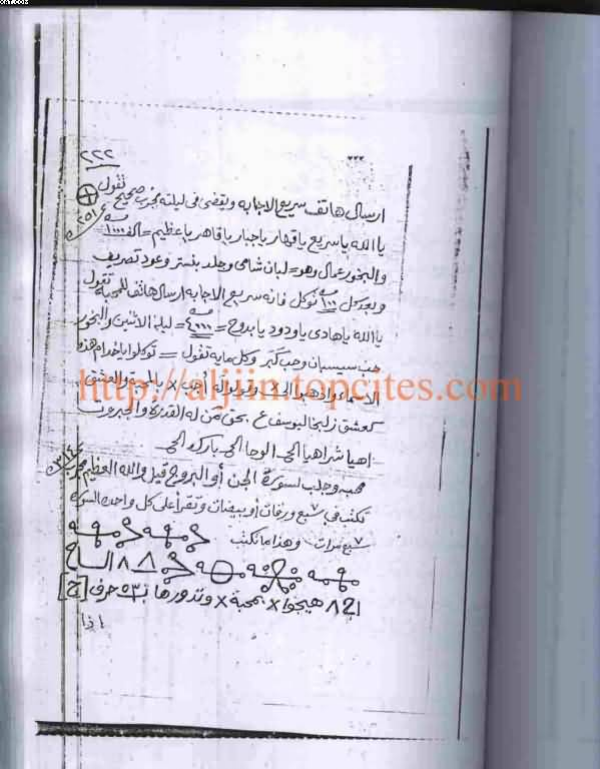 ٢٢٢
٢٥١
ارسال هاتف سريع الاجابه ويقضى فى ليلته مجرب صحيح تقول
يا الله يا سريع يا قهار يا جبار يا قاهر يا عظيم = الف ١٠٠٠
والبخور عمال وهو = لبان شامى وجلد بنستر وعود تصريف
وبعد كل ١٠٠ توكل فانه سريع الاجابه ارسال هاتف للمحبة تقول
يا الله يا هادى يا ودود يا بدوح = ٤٠٠٠ = ليلة الاثنين والبخور
حب سيسبان وحب كبر وكل مايه تقول = توكلوا يا خدام هذه
الاسماء واذهبوا الى x وقولوا له أجب x بالمحبة والعشق
كعشق زليخا ليوسف ع بحق من له القدرة والجبروت
اهيا شراهيا الحى الوحا الحى بارك الحى
محبه وجلب لسورة الجن أو البروج قيل والله العظيم مجرب
تكتب فى سبع ورقات أو بيضات وتقرأ على كل واحده السورة
سبع مرات وهذا ما تكتب
٨ ٨ الساح
٨ هيجوا x بمحبة x وتدورها بـ ٥٣ حرف [ح]
اذا
http://aljjin.topcites.com